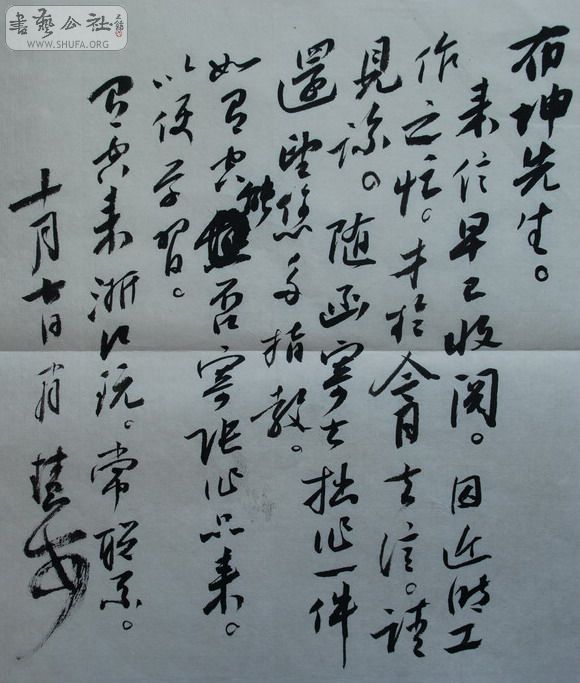 書藝公社
WWW.SHUFA.ORG
坤先生。
来信早已收阅。因近时工
作之忙。才於今月去信。请
見谅。随函寄去拙作一件
還望您多指教。
如有空能否寄张作品来。
以便学習。
有空来浙江玩。常联系。
十月七日